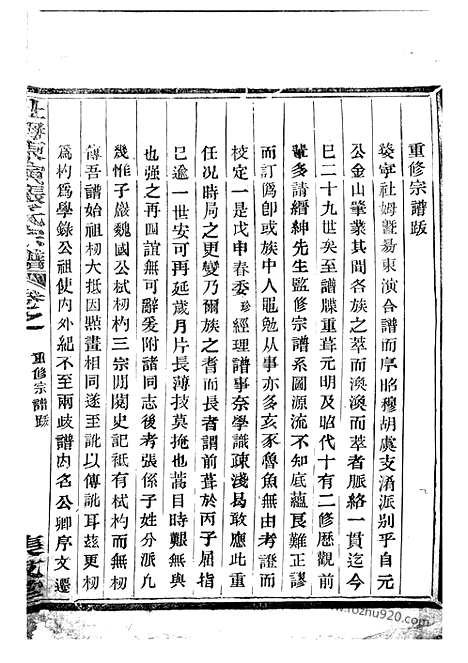 重修宗譜跋
婺寧社姆曁易東演合譜而序昭穆胡虞支涌派别乎自元
公金山肇業其間各族之萃而渙渙而萃者脈絡一貫迄今
巳二十九世矣至譜牒重葺元明及昭代十有二修歷觀前
軰多請縉紳先生監修宗譜系圖源流不知底蘊艮難正謬
而訂僞卽或族中人黽勉从事亦多亥豕魯魚無由考證而
校定一是戊申春委珍經理譜事奈學識疎淺曷敢應此重
任况時局之更變乃爾族之耆而長者謂前葺於丙子屈指
巳逾一世安可再延歲月片長薄技莫掩也蒿目時艱無與
也強之再四誼無可辭爰附諸同志後考張係子姓分派凢
幾惟子嚴魏國公栻杓三宗閲閲史記祇有栻杓而無枬
傳吾譜始祖枬大抵因㸃畫相同遂至訛以傳訛耳玆更枬
爲杓爲學錄公祖使内外紀不至兩歧譜内名公卿序文遷
重修宗譜跋
www.fozhu920.com